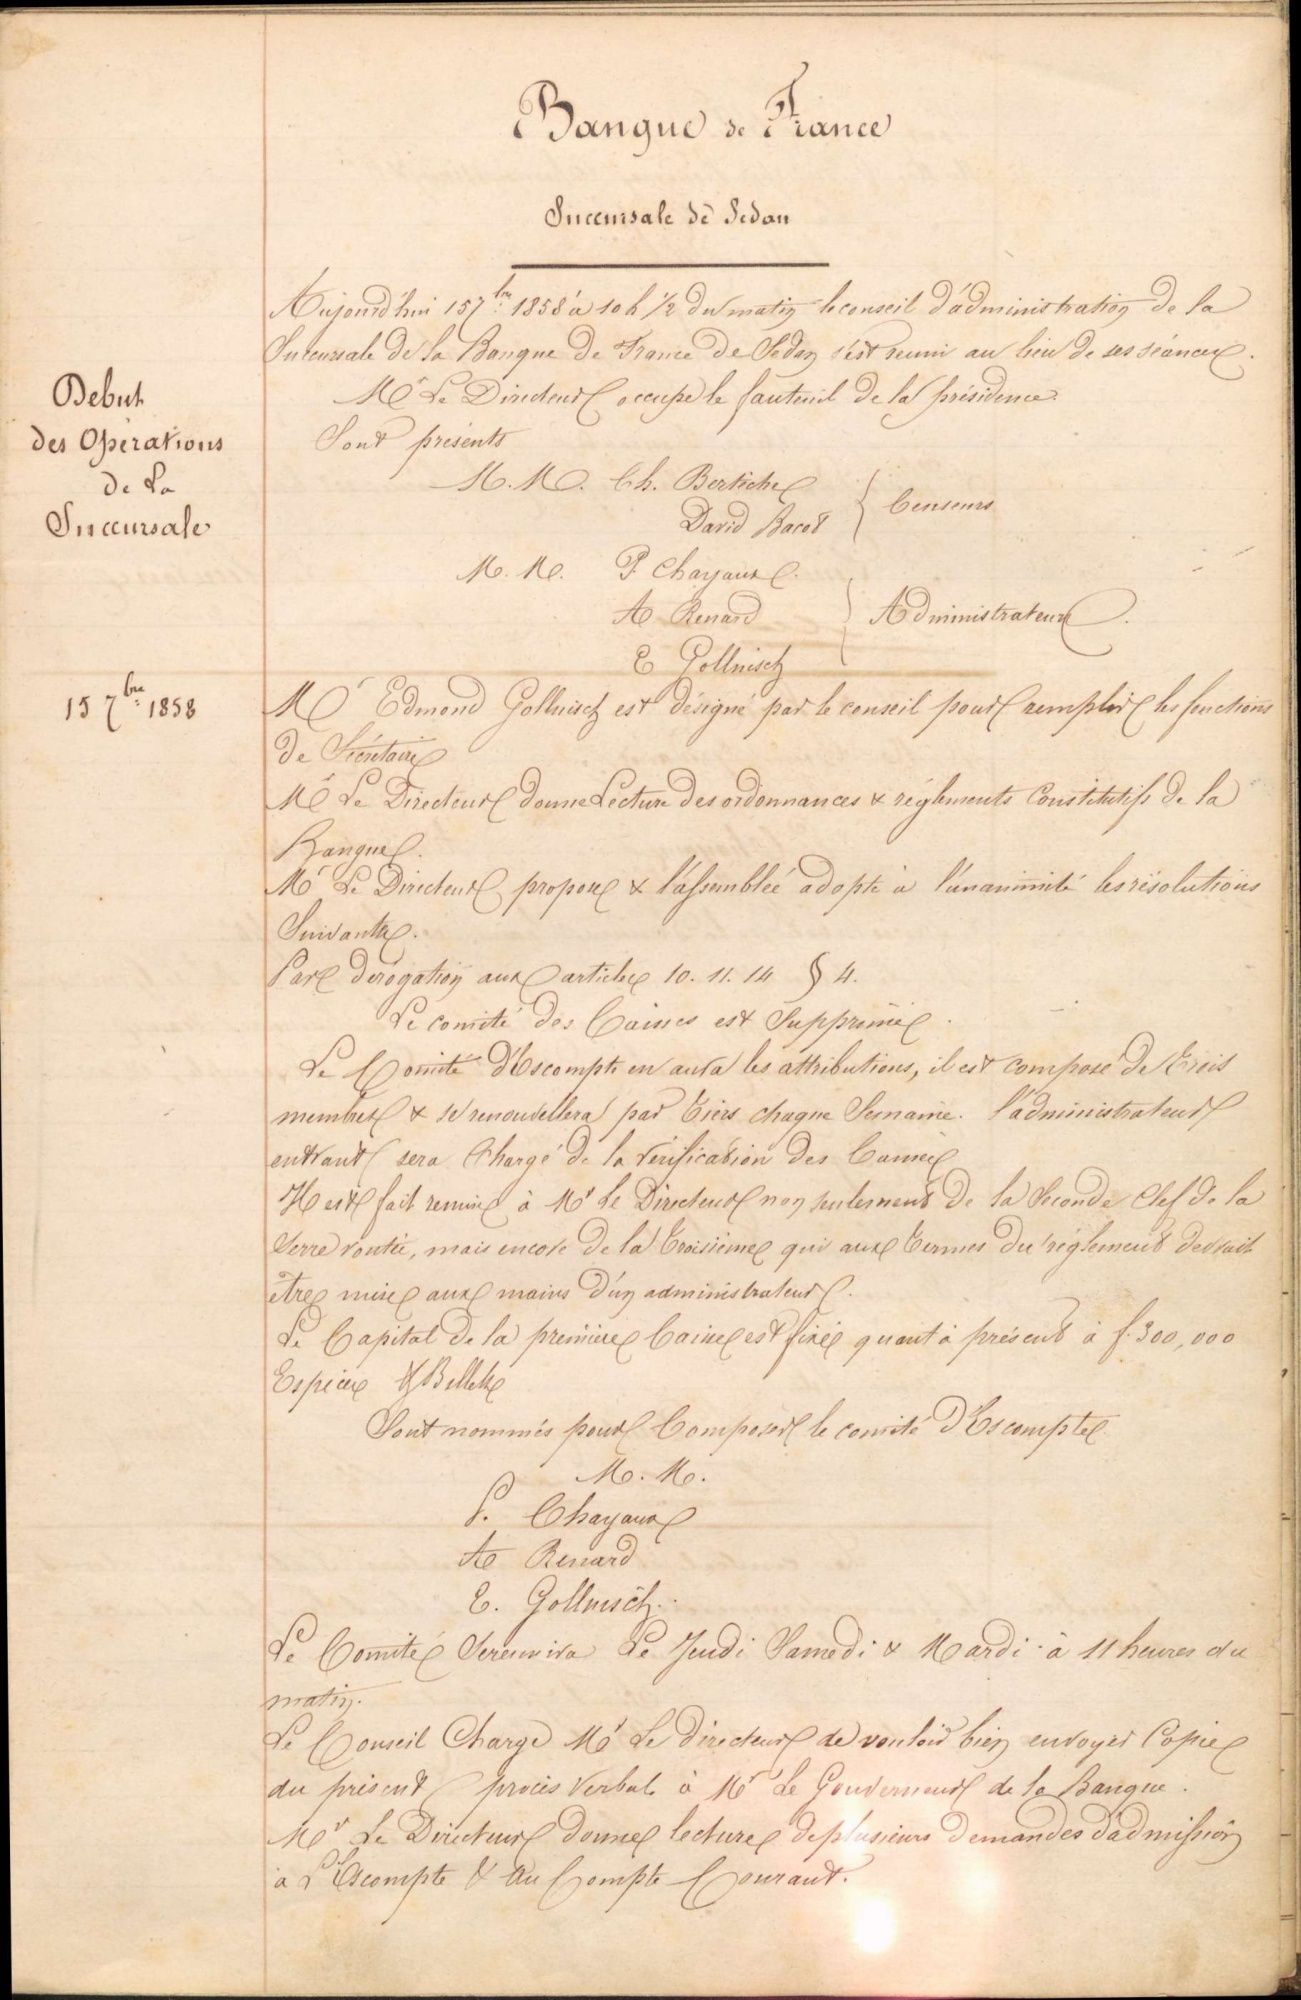 Banque de France
Succursale de Sedan
Aujourd'hui 15 7bre 1858 à 10 h 1/2 du matin le conseil d'administration de la
Succursale de la Banque de France de Sedan s'est reuni au lieu de ses séances.
Mr Le Directeur occupe le fauteuil de la présidence.
Debut
des Opérations
de La
Succursale
Sont présents
M. M. Ch. Bertèche
David Bacot
Censeurs
M. M. P. Chayaux.
A Renard
E Gollnisch
Administrateurs.
15 7bre 1858
Mr Edmond Gollnisch est désigné par le conseil pour remplir les fonctions
de Sécrétaire
Mr Le Directeur donne Lecture des ordonnances & réglements Constitutifs de la
Banque.
Mr Le Directeur propose & l'assemblée adopte à l'unanimité les résolutions
Suivantes.
Par dérogation aux articles 10. 11. 14 § 4.
Le comité des Caisses est Supprimé.
Le Comité d'Escompte en aura les attributions, il est composé de Trois
membres & se renouvellera par Tiers chaque Semaine. l'administrateur
entrant sera Chargé de la vérification des Caisses
Il est fait remise à Mr Le Directeur non seulement de la Seconde Clef de la
Serre voutée, mais encore de la Troisième qui aux Termes du réglement devrait
être mise aux mains d'un administrateur.
Le Capital de la première Caisse est fixé quant à présent à f. 300,000
Espèces & Billets
Sont nommés pour Composer le comité d'Escompte
M. M.
P. Chayaux
A Renard
E. Gollnisch.
Le Comité Se reunira Le Jeudi Samedi & Mardi à 11 heures du
matin.
Le Conseil Charge Mr Le Directeur de vouloir bien envoyer Copie
du présent procès verbal à Mr Le Gouverneur de la Banque.
Mr Le Directeur donne lecture de plusieurs Demandes d'admission
à L'Escompte & au Compte Courant.